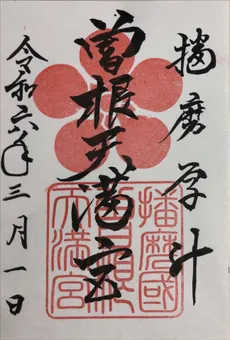 播磨学汁
曽根天満宮
令和六年三月一日
播磨國
曽根
天満宮